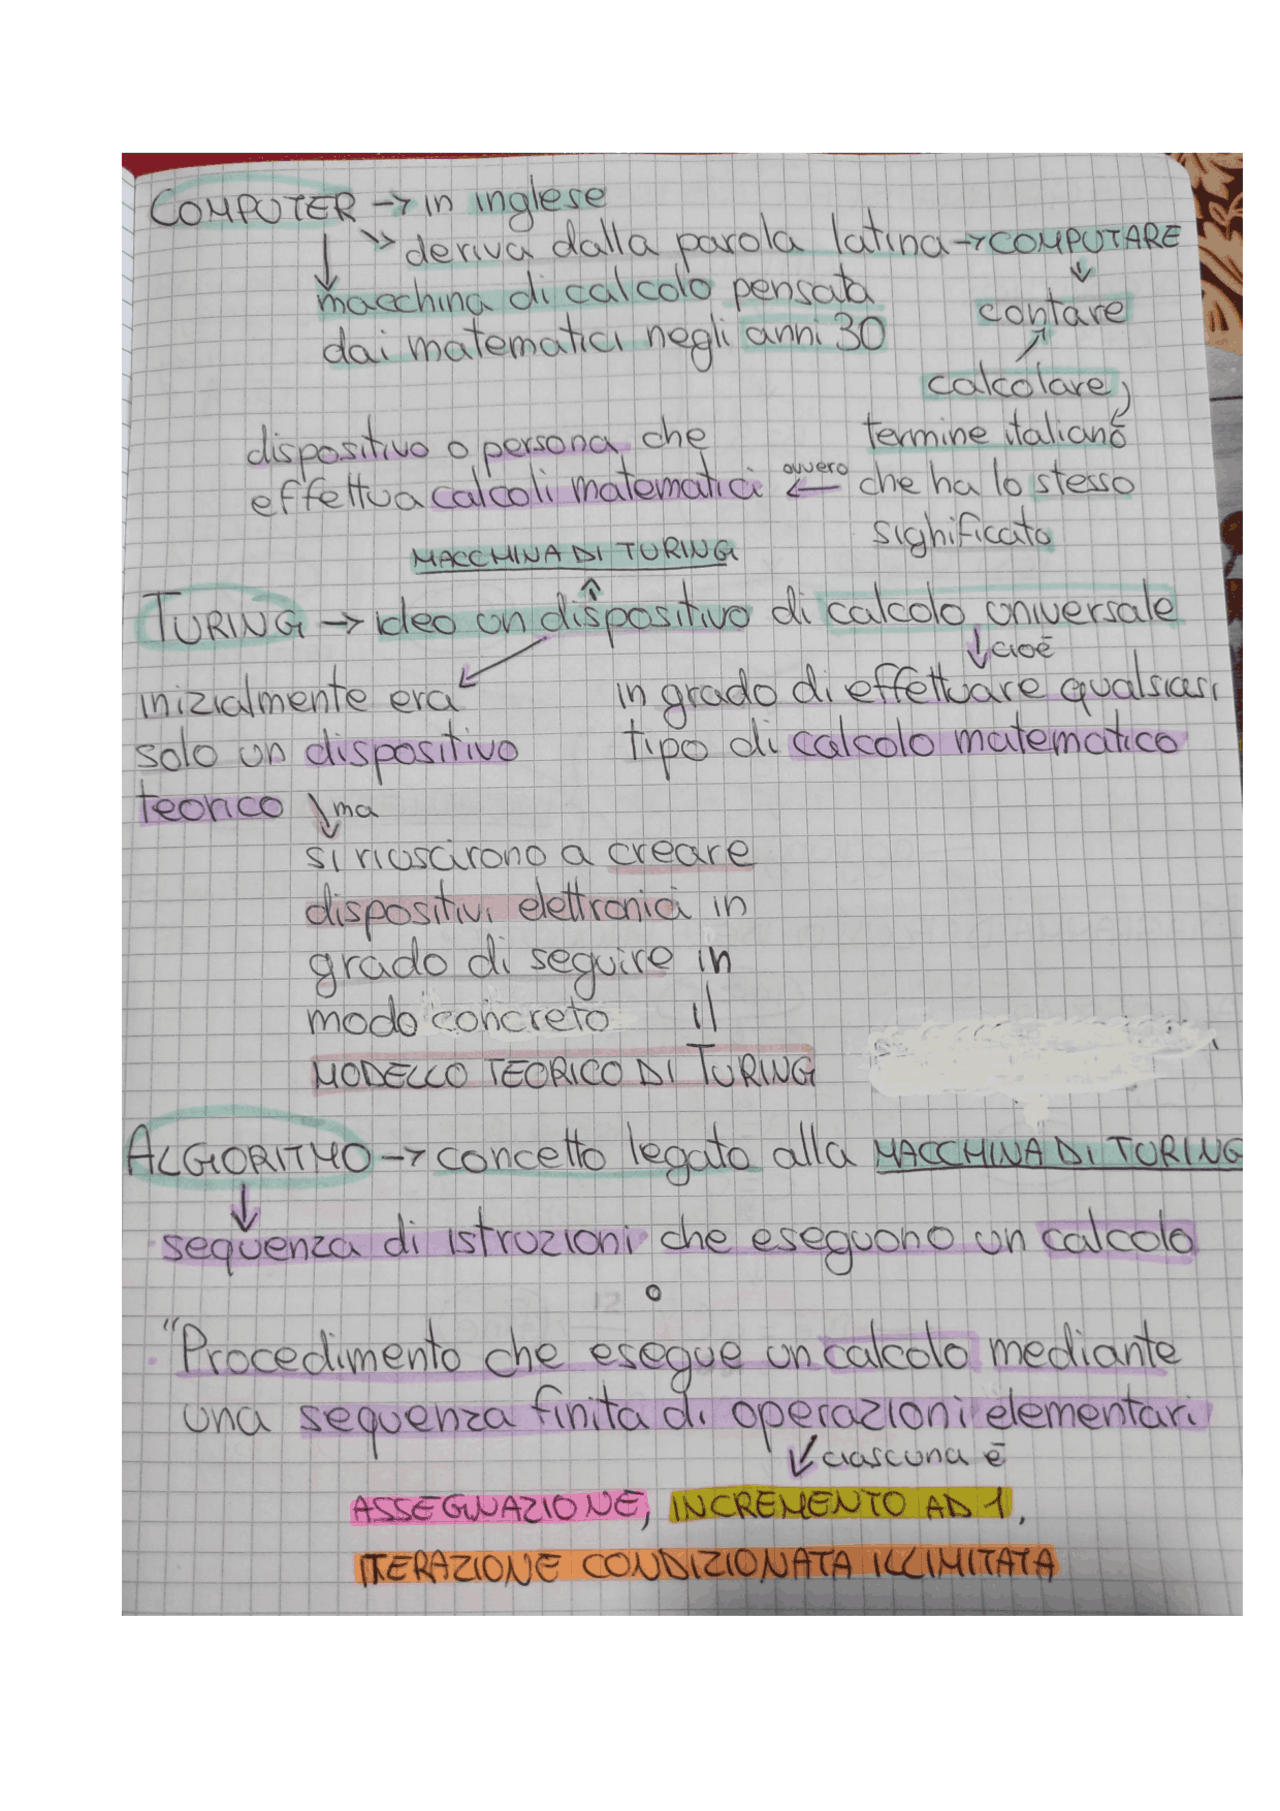 COMPUTER → in inglese
↓ ↘ deriva dalla parola latina → COMPUTARE
macchina di calcolo pensata
dai matematici negli anni 30
↓
contare
↗
calcolare,
termine italiano
che ha lo stesso
significato
← ovvero
dispositivo o persona che
effettua calcoli matematici
MACCHINA DI TURING
↑
TURING → ideo un dispositivo di calcolo universale
↓ cioè
in grado di effettuare qualsiasi
tipo di calcolo matematico
↙
inizialmente era
solo un dispositivo
teorico ↘ ma
si riuscirono a creare
dispositivi elettronici in
grado di seguire in
modo concreto il
MODELLO TEORICO DI TURING
ALGORITMO → concetto legato alla MACCHINA DI TURING
↓
sequenza di istruzioni che eseguono un calcolo
o
"Procedimento che esegue un calcolo mediante
una sequenza finita di operazioni elementari
↙ ciascuna è
ASSEGNAZIONE, INCREMENTO AD 1,
ITERAZIONE CONDIZIONATA ILLIMITATA